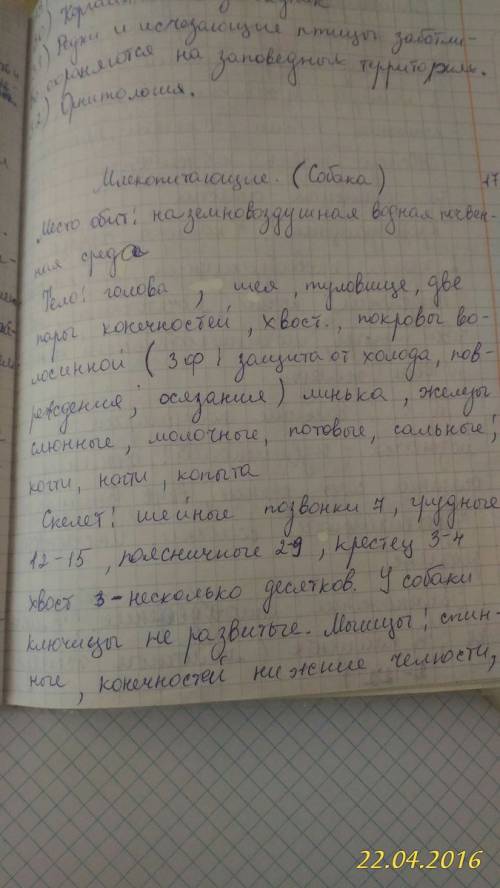 11) Редки и исчезающие птицы заботли-
во охраняются на заповедных территориях.
12) Орнитология.
Млекопитающие. (Собака)
17
Место обит: наземновоздушная водная почвен-
ния среда
Тело: голова, шея, туловище, две
пары конечностей, хвост., покровы во-
лосинной (3 ф: защита от холода, пов-
реждения, осязания) линька, железы
слюнные, молочные, потовые, сальные;
когти, ногти, копыта
Скелет: шейные позвонки 7, грудные
12-15, поясничные 2-9, крестец 3-4
хвост 3-несколько десятков. У собаки
ключицы не развитые. Мышцы: спин-
ные, конечностей нижние челюсти,
22.04.2016